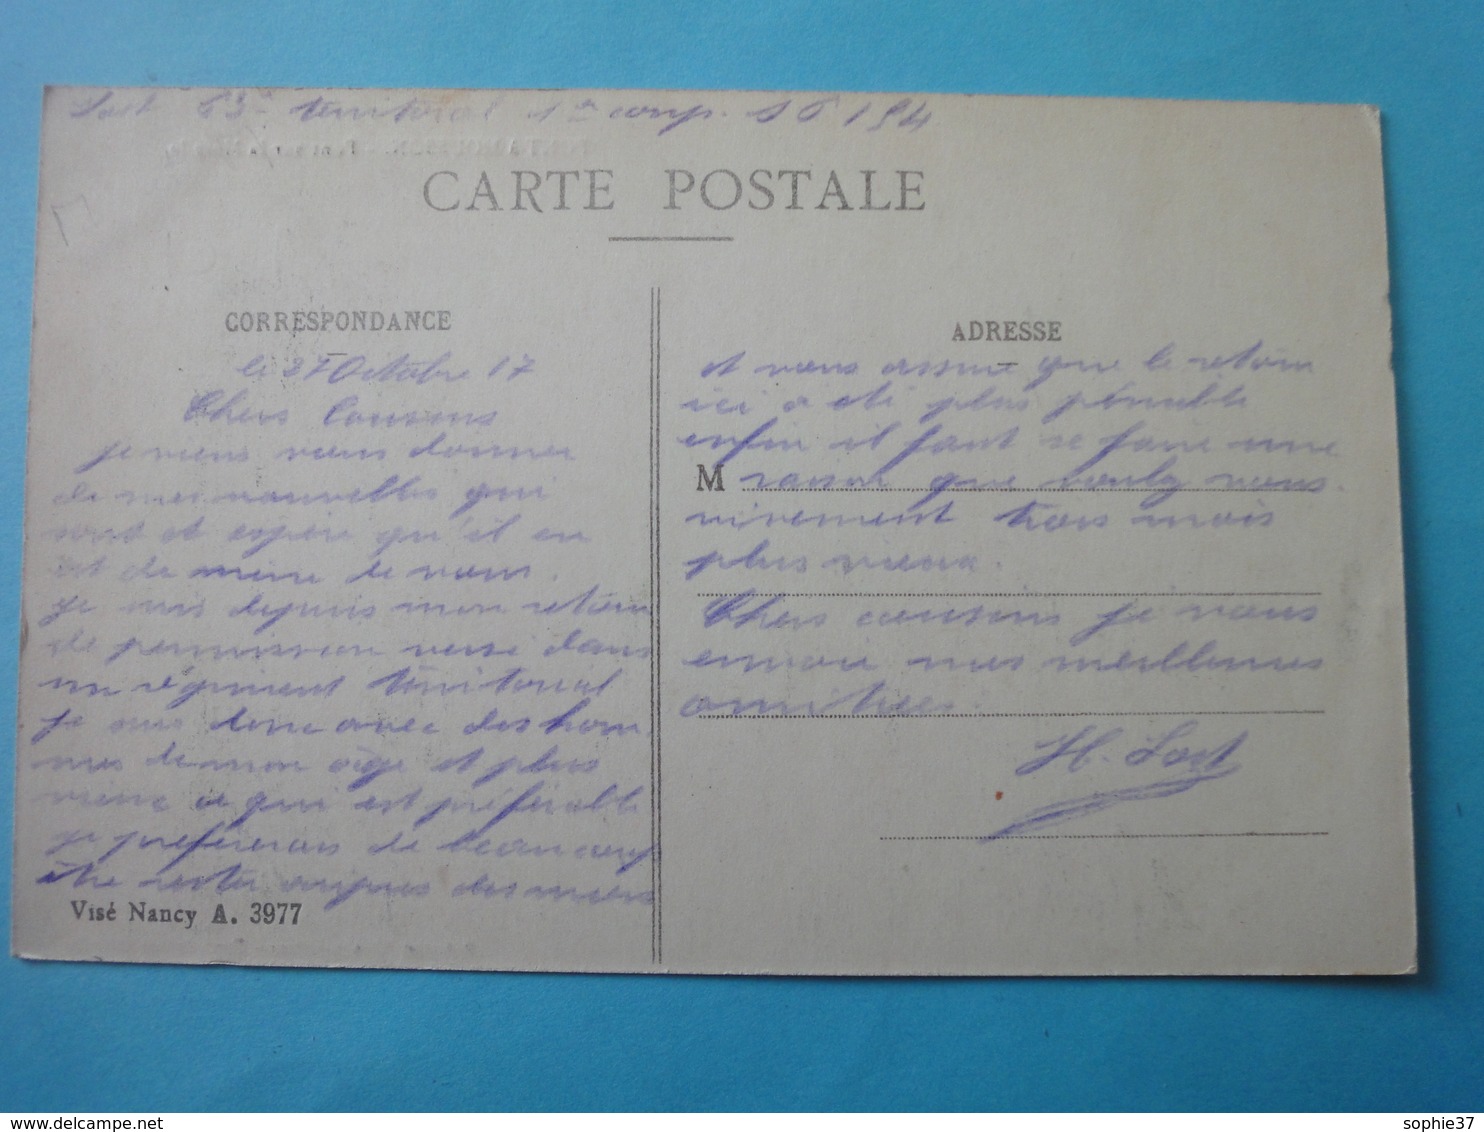 63e territorial 1re comp. SP 194
CARTE POSTALE
CORRESPONDANCE
le 27 Octobre 17
Chers Cousins
je viens vous donner
de mes nouvelles qui
sont et espère qu'il en
est de même de vous.
je suis depuis mon retour
de permission versé dans
un régiment territorial
je suis donc avec des hom
mes de mon âge et plus
vieux ce qui est préférable
je préfèrerais de beaucoup
être rester auprès des miens
Visé Nancy A. 3977
ADRESSE
et vous assure que le retour
ici a été plus pénible
enfin il faut se faire une
M raison que voulez vous
vivement trois mois
plus vieux.
Chers cousins je vous
envoie mes meilleures
amitiées.
H. Sost
sophie37